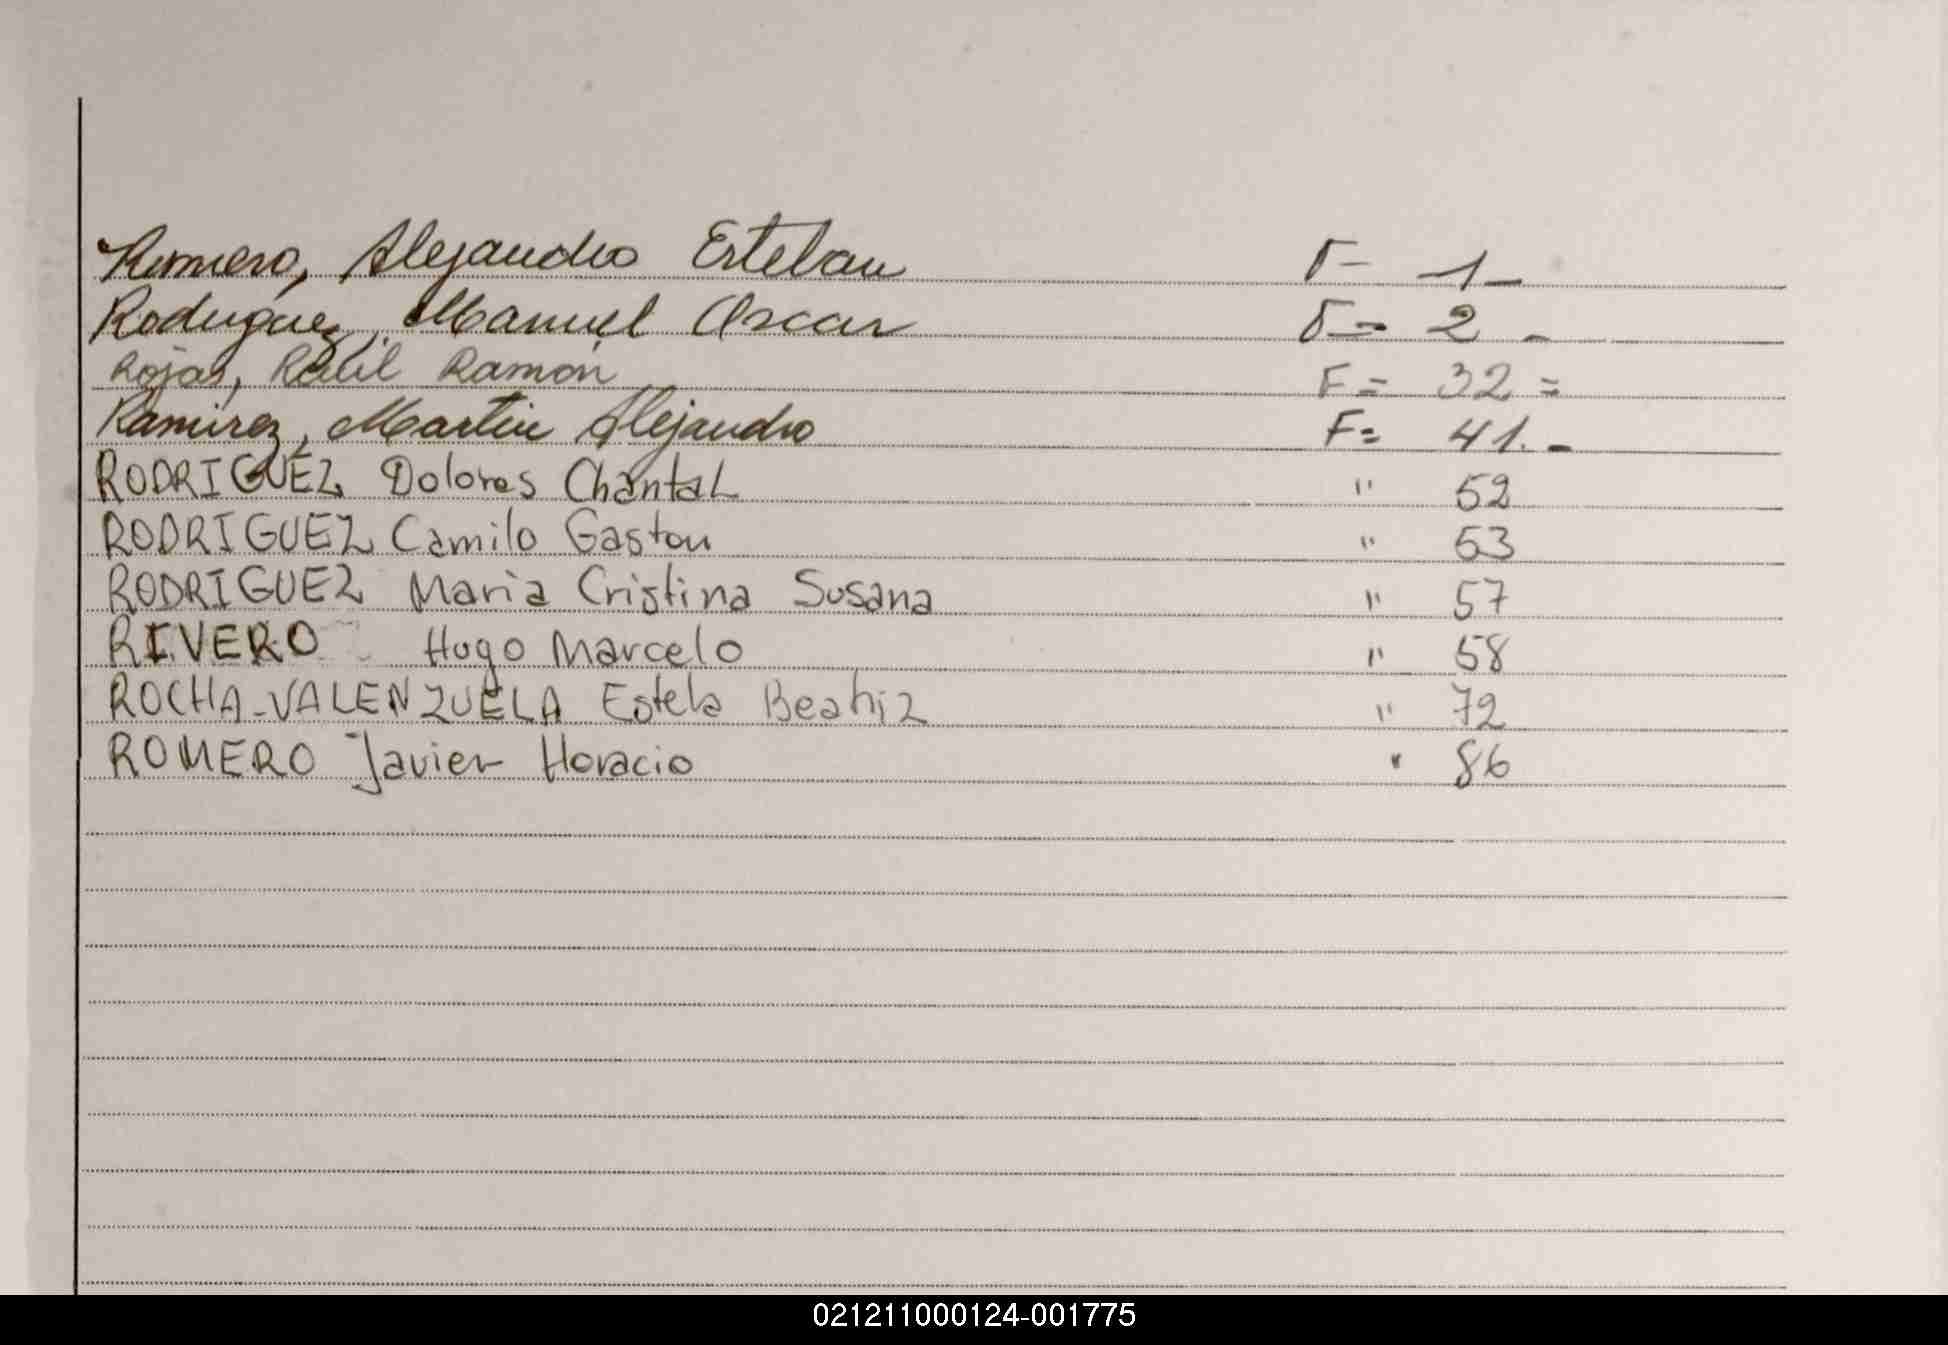 Romero, Alejandro Esteban F- 1-
Rodriguez, Manuel Oscar F= 2 -
Rojas, Raúl Ramón F= 32 =
Ramirez, Martin Alejandro F= 41.-
RODRIGUEZ Dolores Chantal " 52
RODRIGUEZ Camilo Gaston " 53
RODRIGUEZ Maria Cristina Susana " 57
RIVERO Hugo Marcelo " 58
ROCHA-VALENZUELA Estela Beatriz " 72
ROMERO Javier Horacio " 86
021211000124-001775